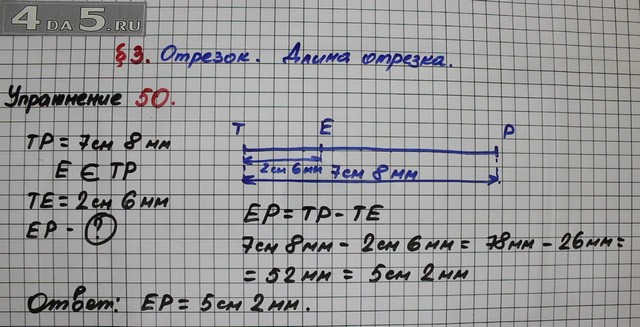 4 DA 5.RU
§3. Отрезок. Длина отрезка.
Упражнение 50.
TP = 7см 8мм
E ∈ TP
TE = 2см 6мм
EP - ?
T E P
2см 6мм
7см 8мм
EP = TP - TE
7см 8мм - 2см 6мм = 78мм - 26мм =
= 52мм = 5см 2мм
Ответ: EP = 5см 2мм.